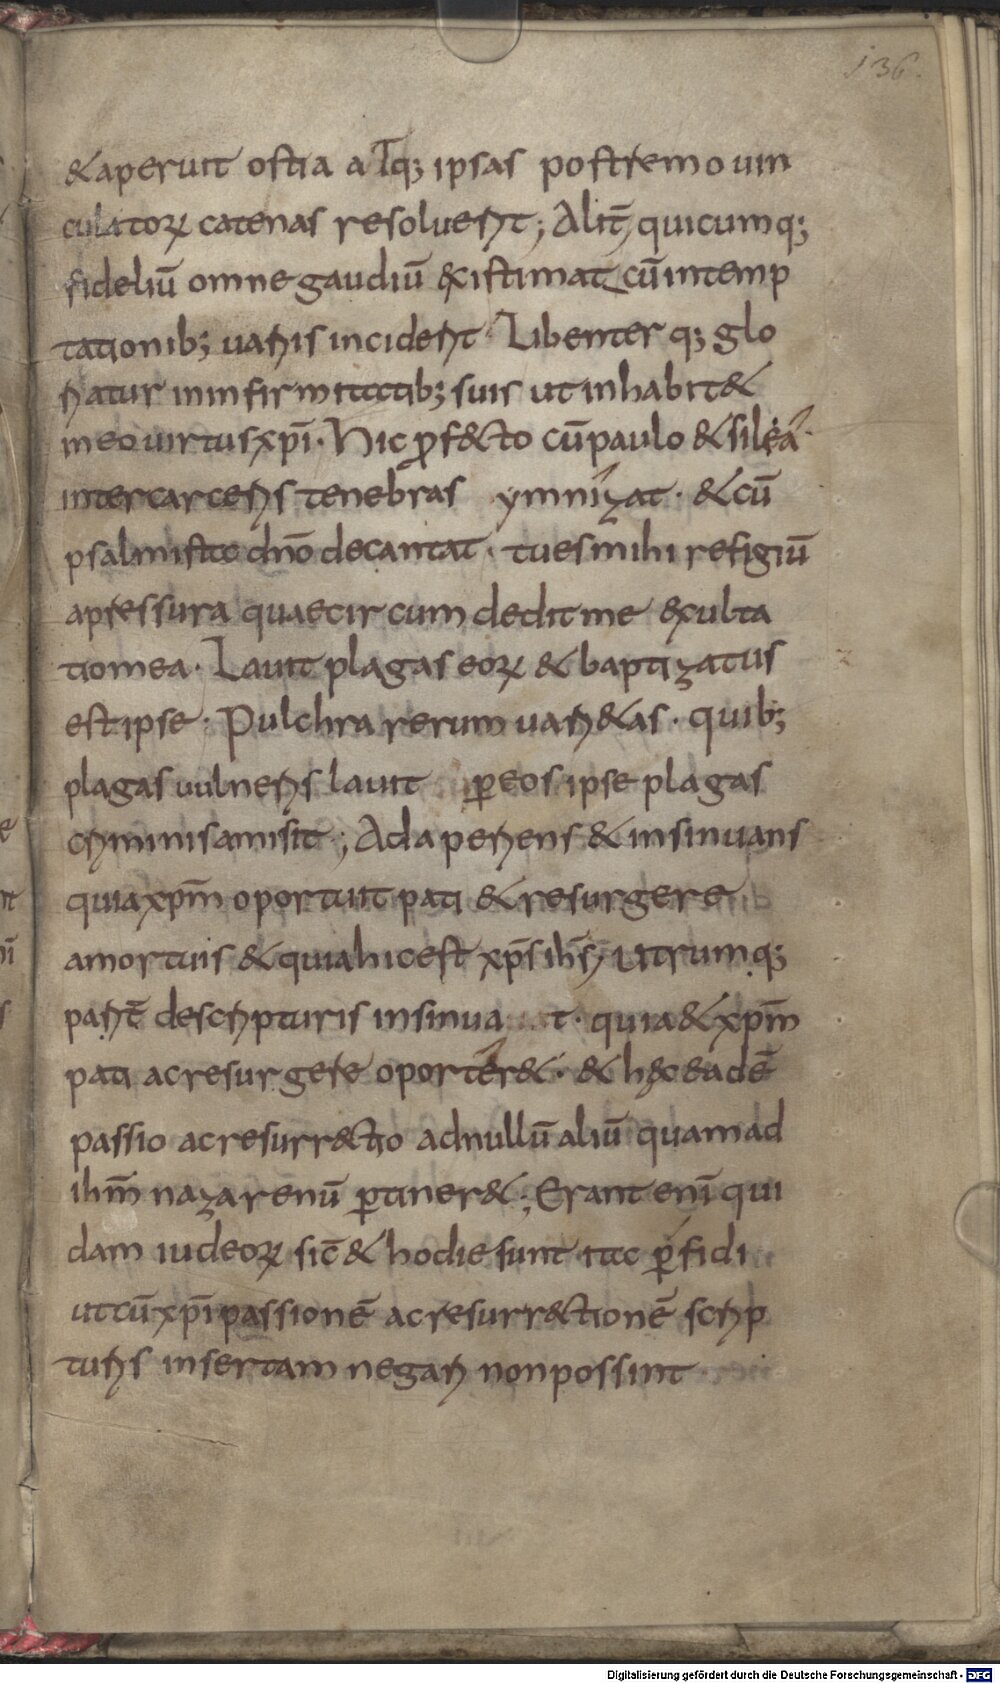 136.
& aperuit ostia atq; ipsas postremo uin
culatorꝝ catenas resoluerit; Alit̄ quicumq;
fideliū omne gaudiū existimat cū in temp
tationib; uariis inciderit· Libenter q; glo
riatur in infirmitatib; suis ut inhabit&
in eo uirtus xp̄i· Hic ꝓfecto cū paulo & silea·
inter carceris tenebras ymnizat· & cū
psalmista dn̄o decantat· tu es mihi refigiū
apressura quae circumdedit me exulta
tio mea· Lauit plagas eorꝝ & baptizatus
est ipse· Pulchra rerum uari&as· quib;
plagas uulneris lauit ꝑ eos ipse plagas
criminis amisit; Adaperiens & insinuans
quia xp̄m oportuit pati & resurgere
a mortuis & quia hic est xp̄s ih̄s; Utrumq;
parit̄ de scripturis insinuat· quia & xp̄m
pati ac resurgere oporter&· & hęc eadē
passio ac resurr&tio ad nullū aliū quam ad
ih̄m nazarenū ꝑtiner&; Erant enī qui
dam iudeorꝝ sic̄ & hodie sunt ita ꝑfidi
ut cū xp̄i passionē ac resurr&tionē scrip
turis insertam negari non possint
Digitalisierung gefördert durch die Deutsche Forschungsgemeinschaft - DFG